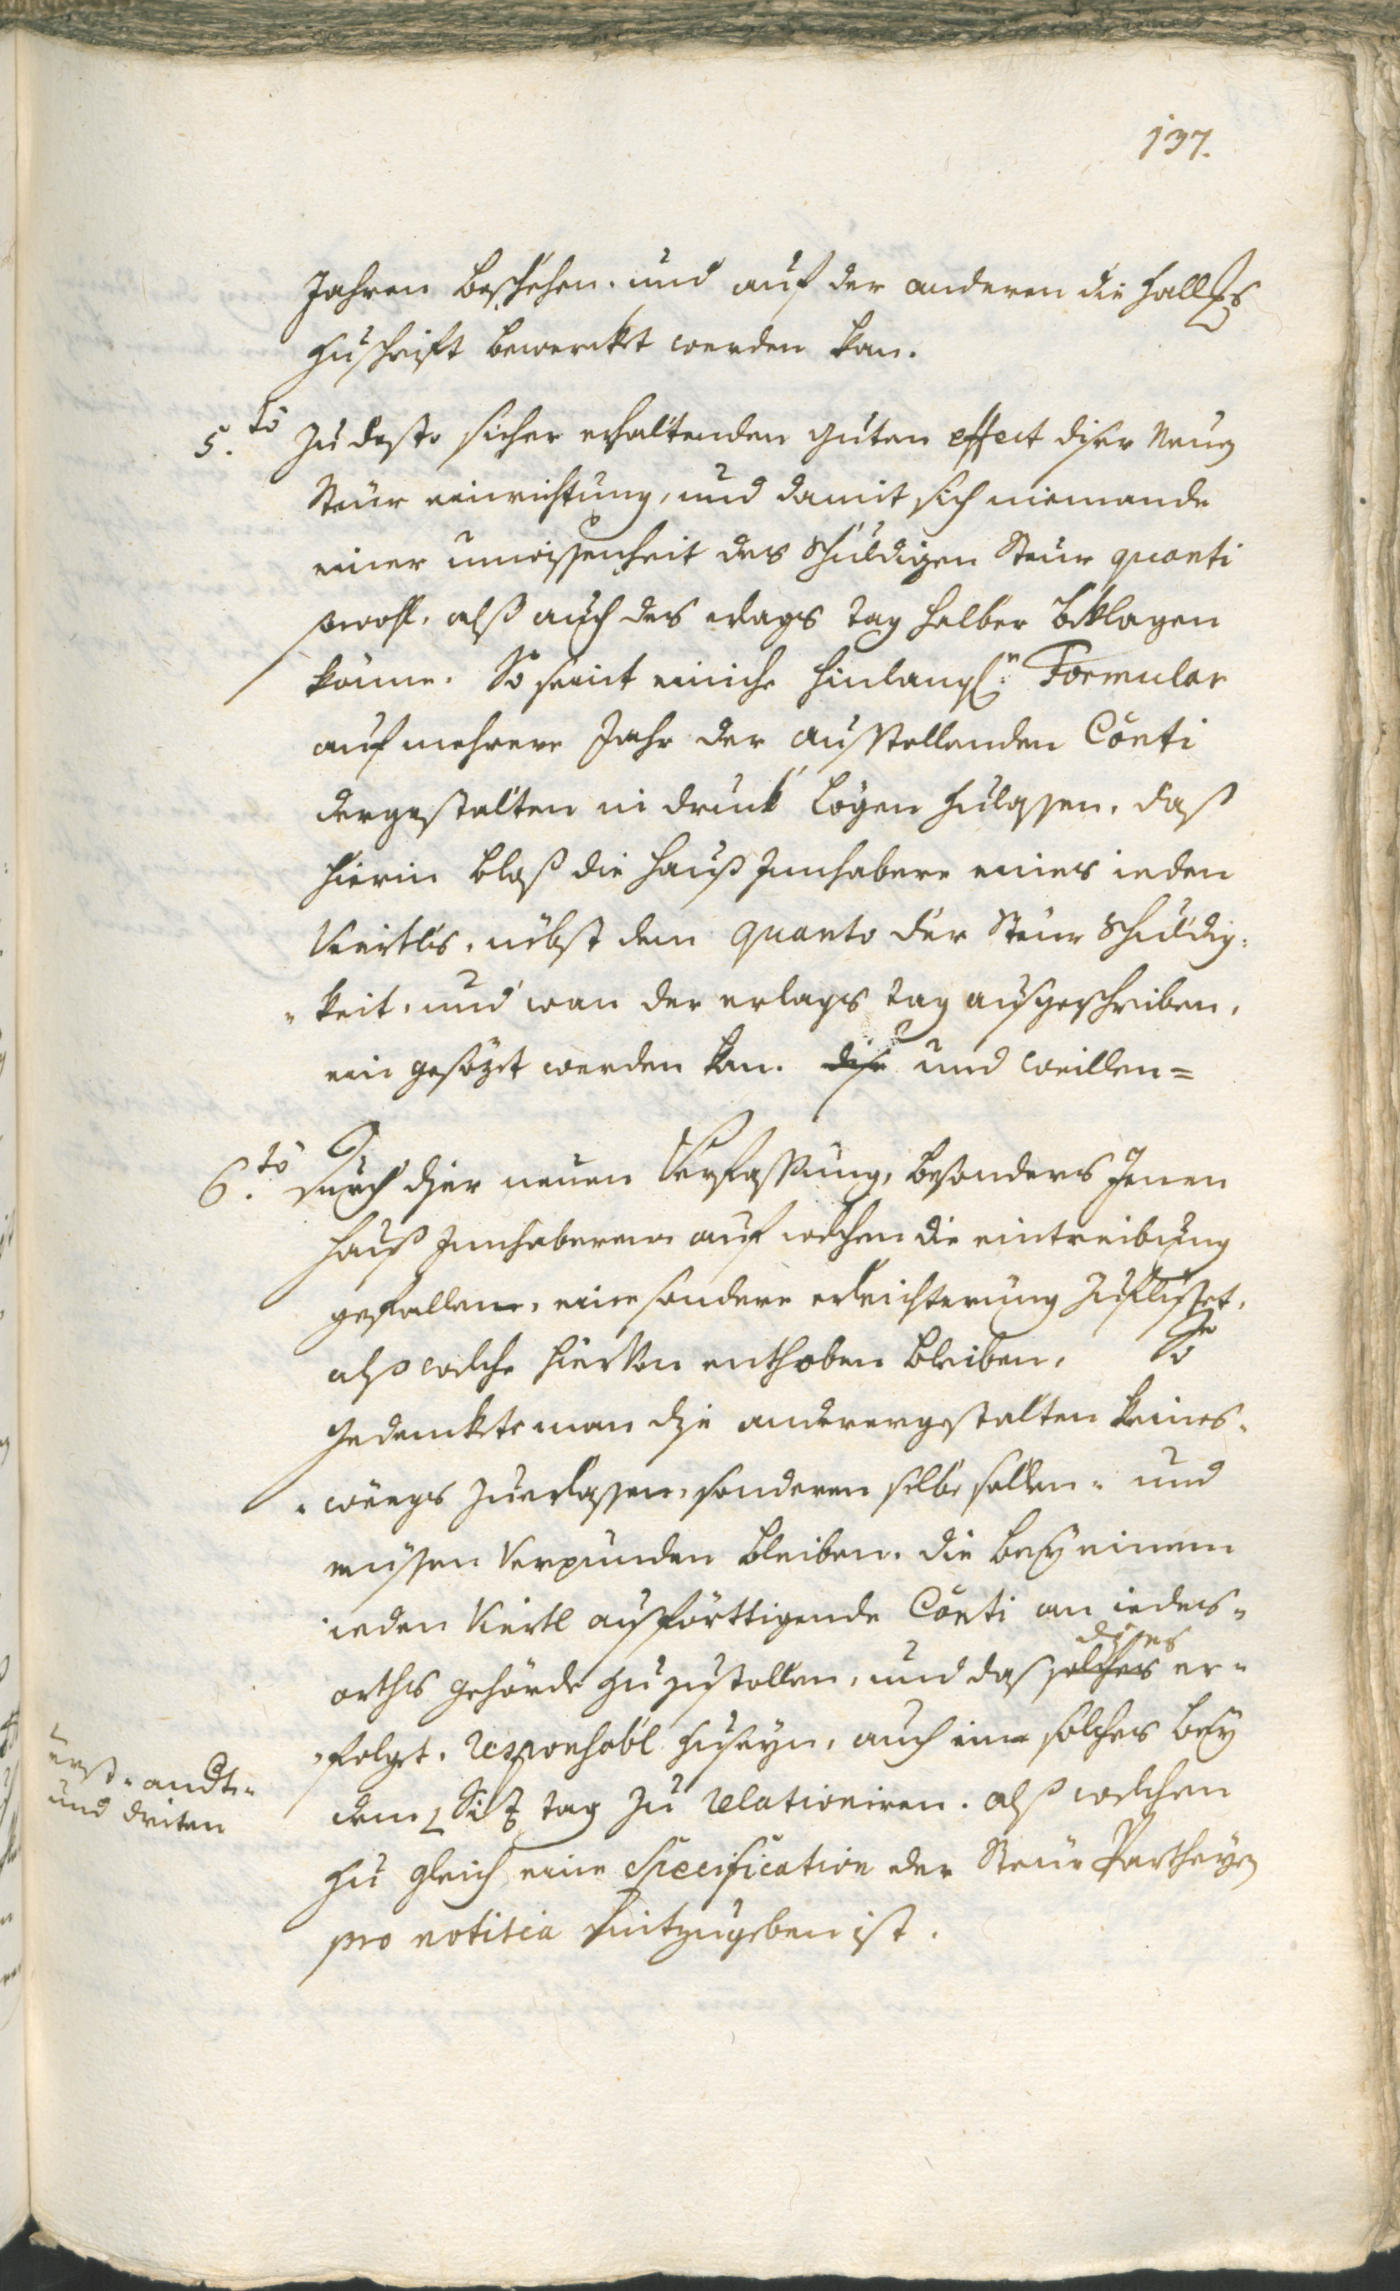 137.
Jahren beschehen. und auf der anderen die
Zuschrift bemerckt werden kan.
5.to Zu desto sicher erhaltenden guten effect diser Neuen
Steur einrichtung, und damit sich niemande
einer unwissenheit des Schuldigen Steur quanti
sowohl. alß auch des erlags tag halber beklagen
könne. So seint einiche hinlangl. Formular
auf mehrere Jahr der ausstellenden Conti
dergestalten in druck legen zulassen. daß
hierin bloß die Hauß Innhabere eines ieden
Viertls. nebst dem quanto der Steur Schuldig-
keit. und wan der erlags tag ausgeschriben,
ein gesözt werden kan. dise und weillen=
6.to Durch diser neuen Verfassung, besonders Jenen
Hauß Innhaberen auf welchen die eintreibung
gefallen, eine sondere erleichterung zuflisset,
alß welche hiervon enthoben bleiben, So
gedenckte man dise anderergestalten keines-
weegs zuerlassen, sonderen selbe sollen- und
müssen verpunden bleiben. die bey einem
ieden Viertl ausförttigende Conti an iedes-
dises
orths gehörde zuzustellen, und daß solches er-
folget. responsabl zuseyn, auch ein solches bey
erst- andt-
und driten
dem Siz tag zu relationiren. alß welchen
zu gleich eine Specification der Steur Partheyen
pro notitia mitzugeben ist.